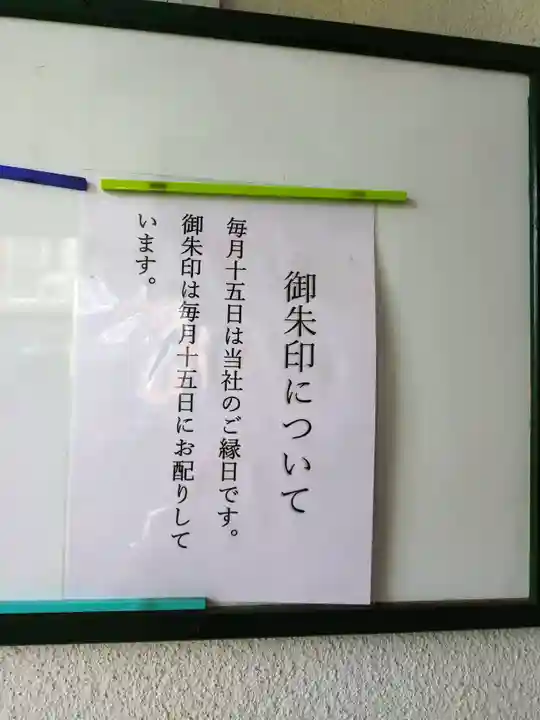 御朱印について
毎月十五日は当社のご縁日です。
御朱印は毎月十五日にお配りして
います。